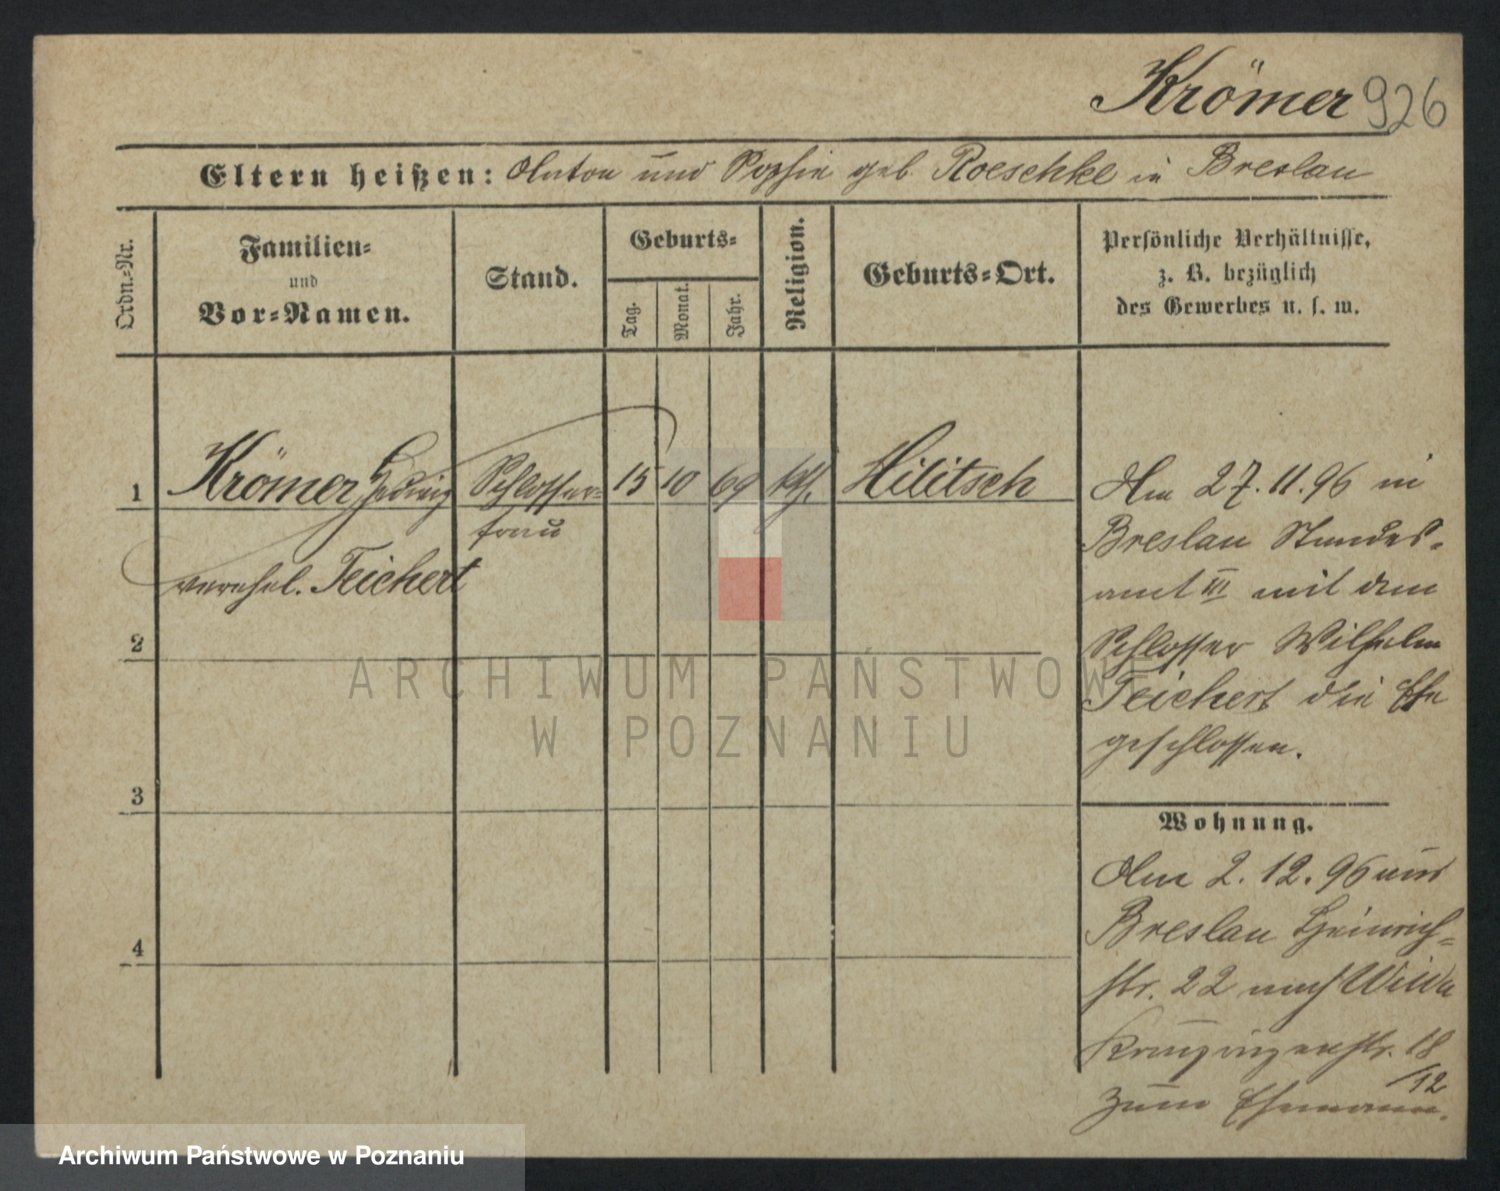 Krömer 926
Eltern heißen: Anton und Sophie geb Roeschke in Breslau
Ordn.-Nr.
Familien-
und
Vor-Namen.
Stand.
Geburts-
Tag.
Monat.
Jahr.
Religion.
Geburts-Ort.
Persönliche Verhältnisse,
z. B. bezüglich
des Gewerbes u. s. w.
1 Krömer Hedwig Schlosser- 15 10 69 kth. Militsch
frau
verehel. Teichert
2
3
4
Am 27.11.96 in
Breslau Standes-
amt III mit dem
Schlosser Wilhelm
Teichert die Ehe
geschlossen.
Wohnung.
Am 2.12.96 aus
Breslau Heinrich-
str. 22 nach Wilda
Kronprinzenstr. 18
/12
zum Ehemann.
ARCHIWUM PAŃSTWOWE
W POZNANIU
Archiwum Państwowe w Poznaniu